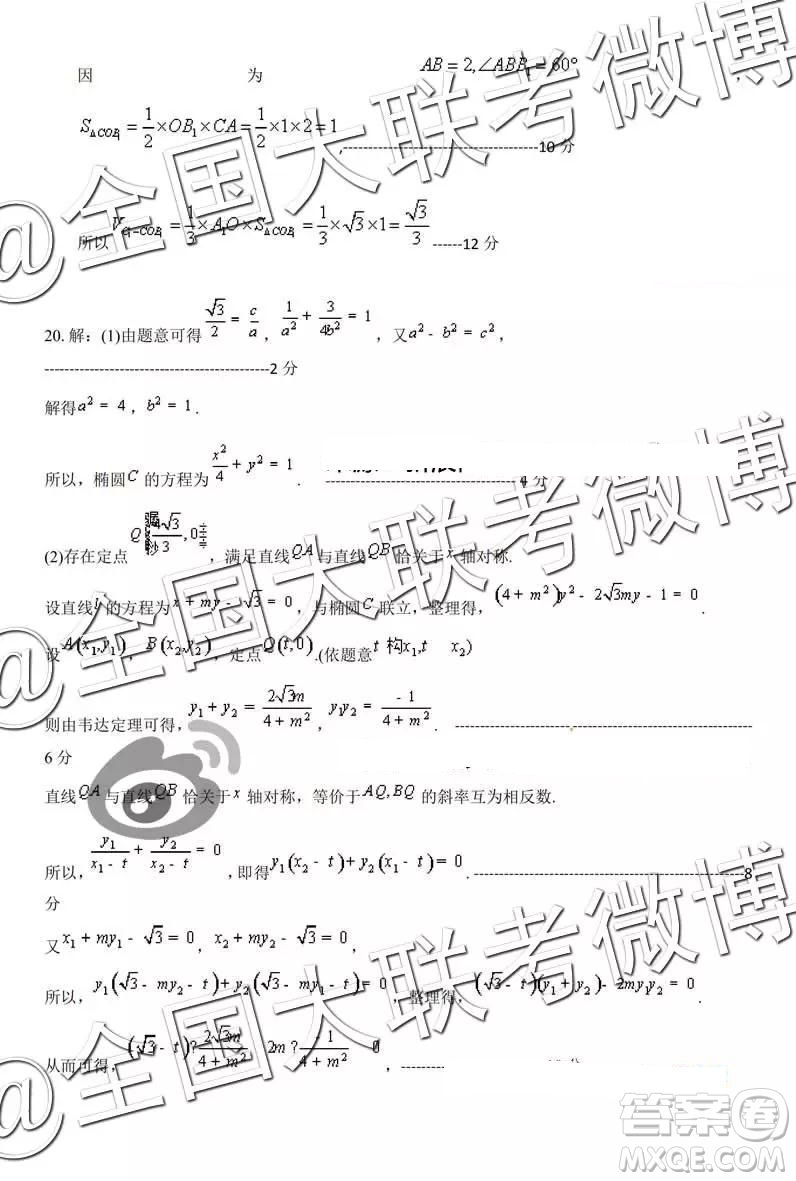 因 为 AB = 2, ∠ABB₁ = 60°
S△COB₁ = 1/2 × OB₁ × CA = 1/2 × 1 × 2 = 1 ,---------------------------------------10 分
所以 V_{C₁-COB₁} = 1/3 × A₁O × S△COB₁ = 1/3 × √3 × 1 = √3/3 ------12 分
20. 解：(1)由题意可得 √3/2 = c/a ， 1/a² + 3/4b² = 1 ，又 a² - b² = c² ，
---------------------------------------------2 分
解得 a² = 4 ， b² = 1 .
所以，椭圆 C 的方程为 x²/4 + y² = 1 . ---------------------------------------4 分
(2)存在定点 Q 4√3/3 , 0 ，满足直线 QA 与直线 QB 恰关于 x 轴对称.
设直线 l 的方程为 x + my - √3 = 0 ，与椭圆 C 联立，整理得， (4 + m²)y² - 2√3my - 1 = 0 .
设 A(x₁,y₁) ， B(x₂,y₂) ，定点 Q(t,0) .(依题意 t 构x₁,t x₂)
则由韦达定理可得， y₁ + y₂ = 2√3m/4 + m² ， y₁y₂ = -1/4 + m² . ------------------------------------------------------------
6 分
直线 QA 与直线 QB 恰关于 x 轴对称，等价于 AQ,BQ 的斜率互为相反数.
所以， y₁/x₁ - t + y₂/x₂ - t = 0 ，即得 y₁(x₂ - t) + y₂(x₁ - t) = 0 . ------------------------------------------------------8
分
又 x₁ + my₁ - √3 = 0 ， x₂ + my₂ - √3 = 0 ，
所以， y₁(√3 - my₂ - t) + y₂(√3 - my₁ - t) = 0 ，整理得， (√3 - t)(y₁ + y₂) - 2my₁y₂ = 0 .
从而可得， (√3 - t)? 2√3m/4 + m² 2m? -1/4 + m² 0 ，---------
@全国大联考微博
@全国大联考微博
@全国大联考微博
答案圈
MXQE.COM